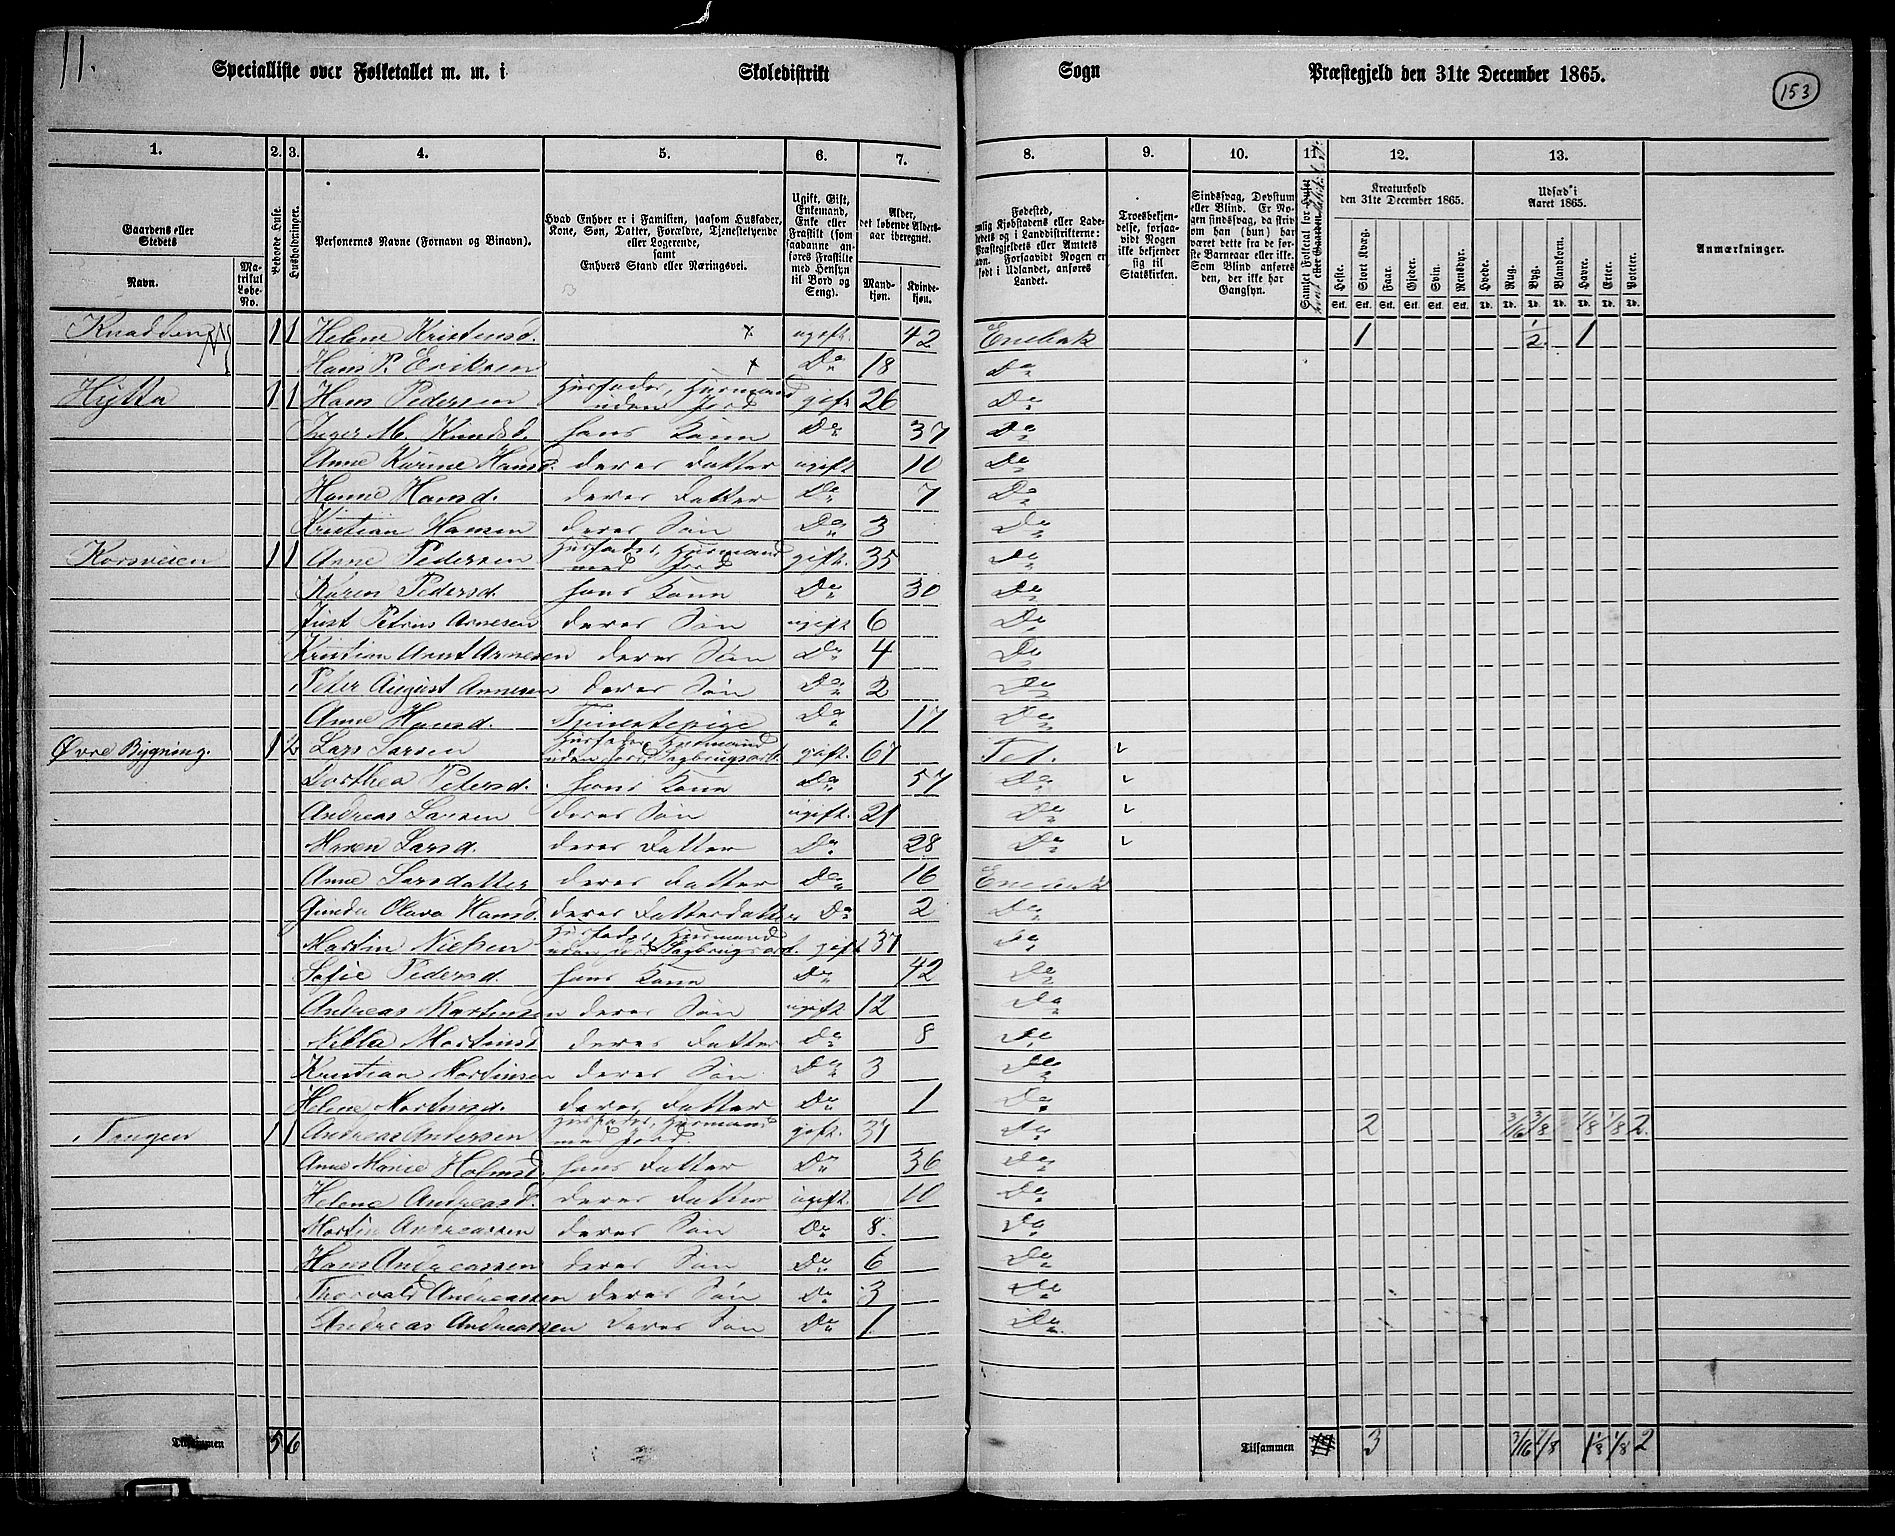 11.
Specialliste over Folketallet m. m. i Skoledistrikt Sogn Præstegjeld den 31te December 1865.
153
1. 2. 3. 4. 5. 6. 7. 8. 9. 10. 11. 12. 13.
Gaardens eller Stedets Navn.
Matrikul Løbe-No.
Beboede Huse.
Husholdninger.
Personernes Navne (Fornavn og Binavn).
Hvad Enhver er i Familien, saasom Husfader, Kone, Søn, Datter, Forældre, Tjenestetyende eller Logerende, samt Enhvers Stand eller Næringsvei.
Ugift, Gift, Enkemand, Enke eller Fraskilt (som saadanne anføres Fraskilte med Hensyn til Bord og Seng).
Alder, det løbende Aldersaar iberegnet.
Mandkjøn. Kvindekjøn.
Fødested,
Troesbekjendelse, forsaavidt Nogen ikke bekjender sig til Statskirken.
Sindssvag, Døvstum eller Blind. Er Nogen sindssvag, da skriv om han (hun) har været dette fra de første Barneaar eller ikke. Som Blind anføres den, der ikke har Gangsyn.
Samlet Folketal for
Kreaturhold den 31te December 1865.
Heste. Stort Kvæg. Faar. Gjeder. Svin. Rensdyr.
Udsæd i Aaret 1865.
Hvede. Rug. Byg. Blandkorn. Havre. Erter. Poteter.
Anmærkninger.
1 1 Helene Kristensd. x ugift. 42 Enebak 1 1/2 1
Hans P. Eriksen x Do 18 Do
Hytta 1 1 Hans Pedersen Husfader, Husmand uden Jord gift 26 Do
Inger M. Knudsd. hans Kone Do 37 Do
Anne Karine Hansd. deres Datter ugift 10 Do
Hanne Hansd. deres Datter Do 7 Do
Kristian Hansen deres Søn Do 3 Do
Korsveien 1 1 Arne Pedersen Husfader, Husmand med Jord gift. 35 Do
Karen Pedersd. hans Kone Do 30 Do
Just Petrus Arnesen deres Søn ugift 6 Do
Kristian Arnt Arnesen deres Søn Do 4 Do
Peter August Arnesen deres Søn Do 2 Do
Anne Hansd. Tjenestepige Do 17 Do
Øvre Bygning. 1 2 Lars Larsen Husfader, Husmand uden Jord Sagbrugsarb. gift. 67 Fet.
Dorthea Petersd. hans Kone Do 57 Do
Andreas Larsen deres Søn ugift. 21 Do
Maren Larsd. deres Datter Do 28 Do
Anne Larsdatter deres Datter Do 16 Enebak
Gunda Olava Hansd. deres Datterdatter Do 2 Do
Martin Nielsen Husfader, Husmand uden Jord Sagbrugsarb. gift 37 Do
Sofie Pedersd. hans Kone Do 42 Do
Andreas Martinsen deres Søn ugift 12 Do
Martinsd. deres Datter Do 8 Do
Kristian Martinsen deres Søn Do 3 Do
Helene Martinsd. deres Datter Do 1 Do
Tangen 1 1 Andreas Andersen Husfader, Husmand med Jord gift. 37 Do 2 3/16 3/8 1/8 1/8 2
Anne Marie Holmsd. hans Datter Do 36 Do
Helene Andreasd. deres Datter ugift. 10 Do
Martin Andreassen deres Søn Do 8. Do
Hans Andreassen deres Søn Do 6 Do
Thorvald Andreassen deres Søn Do 3 Do
Andreas Andreassen deres Søn Do 1 Do
Tilsammen 5 6 Tilsammen 3 3/16 7/8 1 1/8 1/8 2